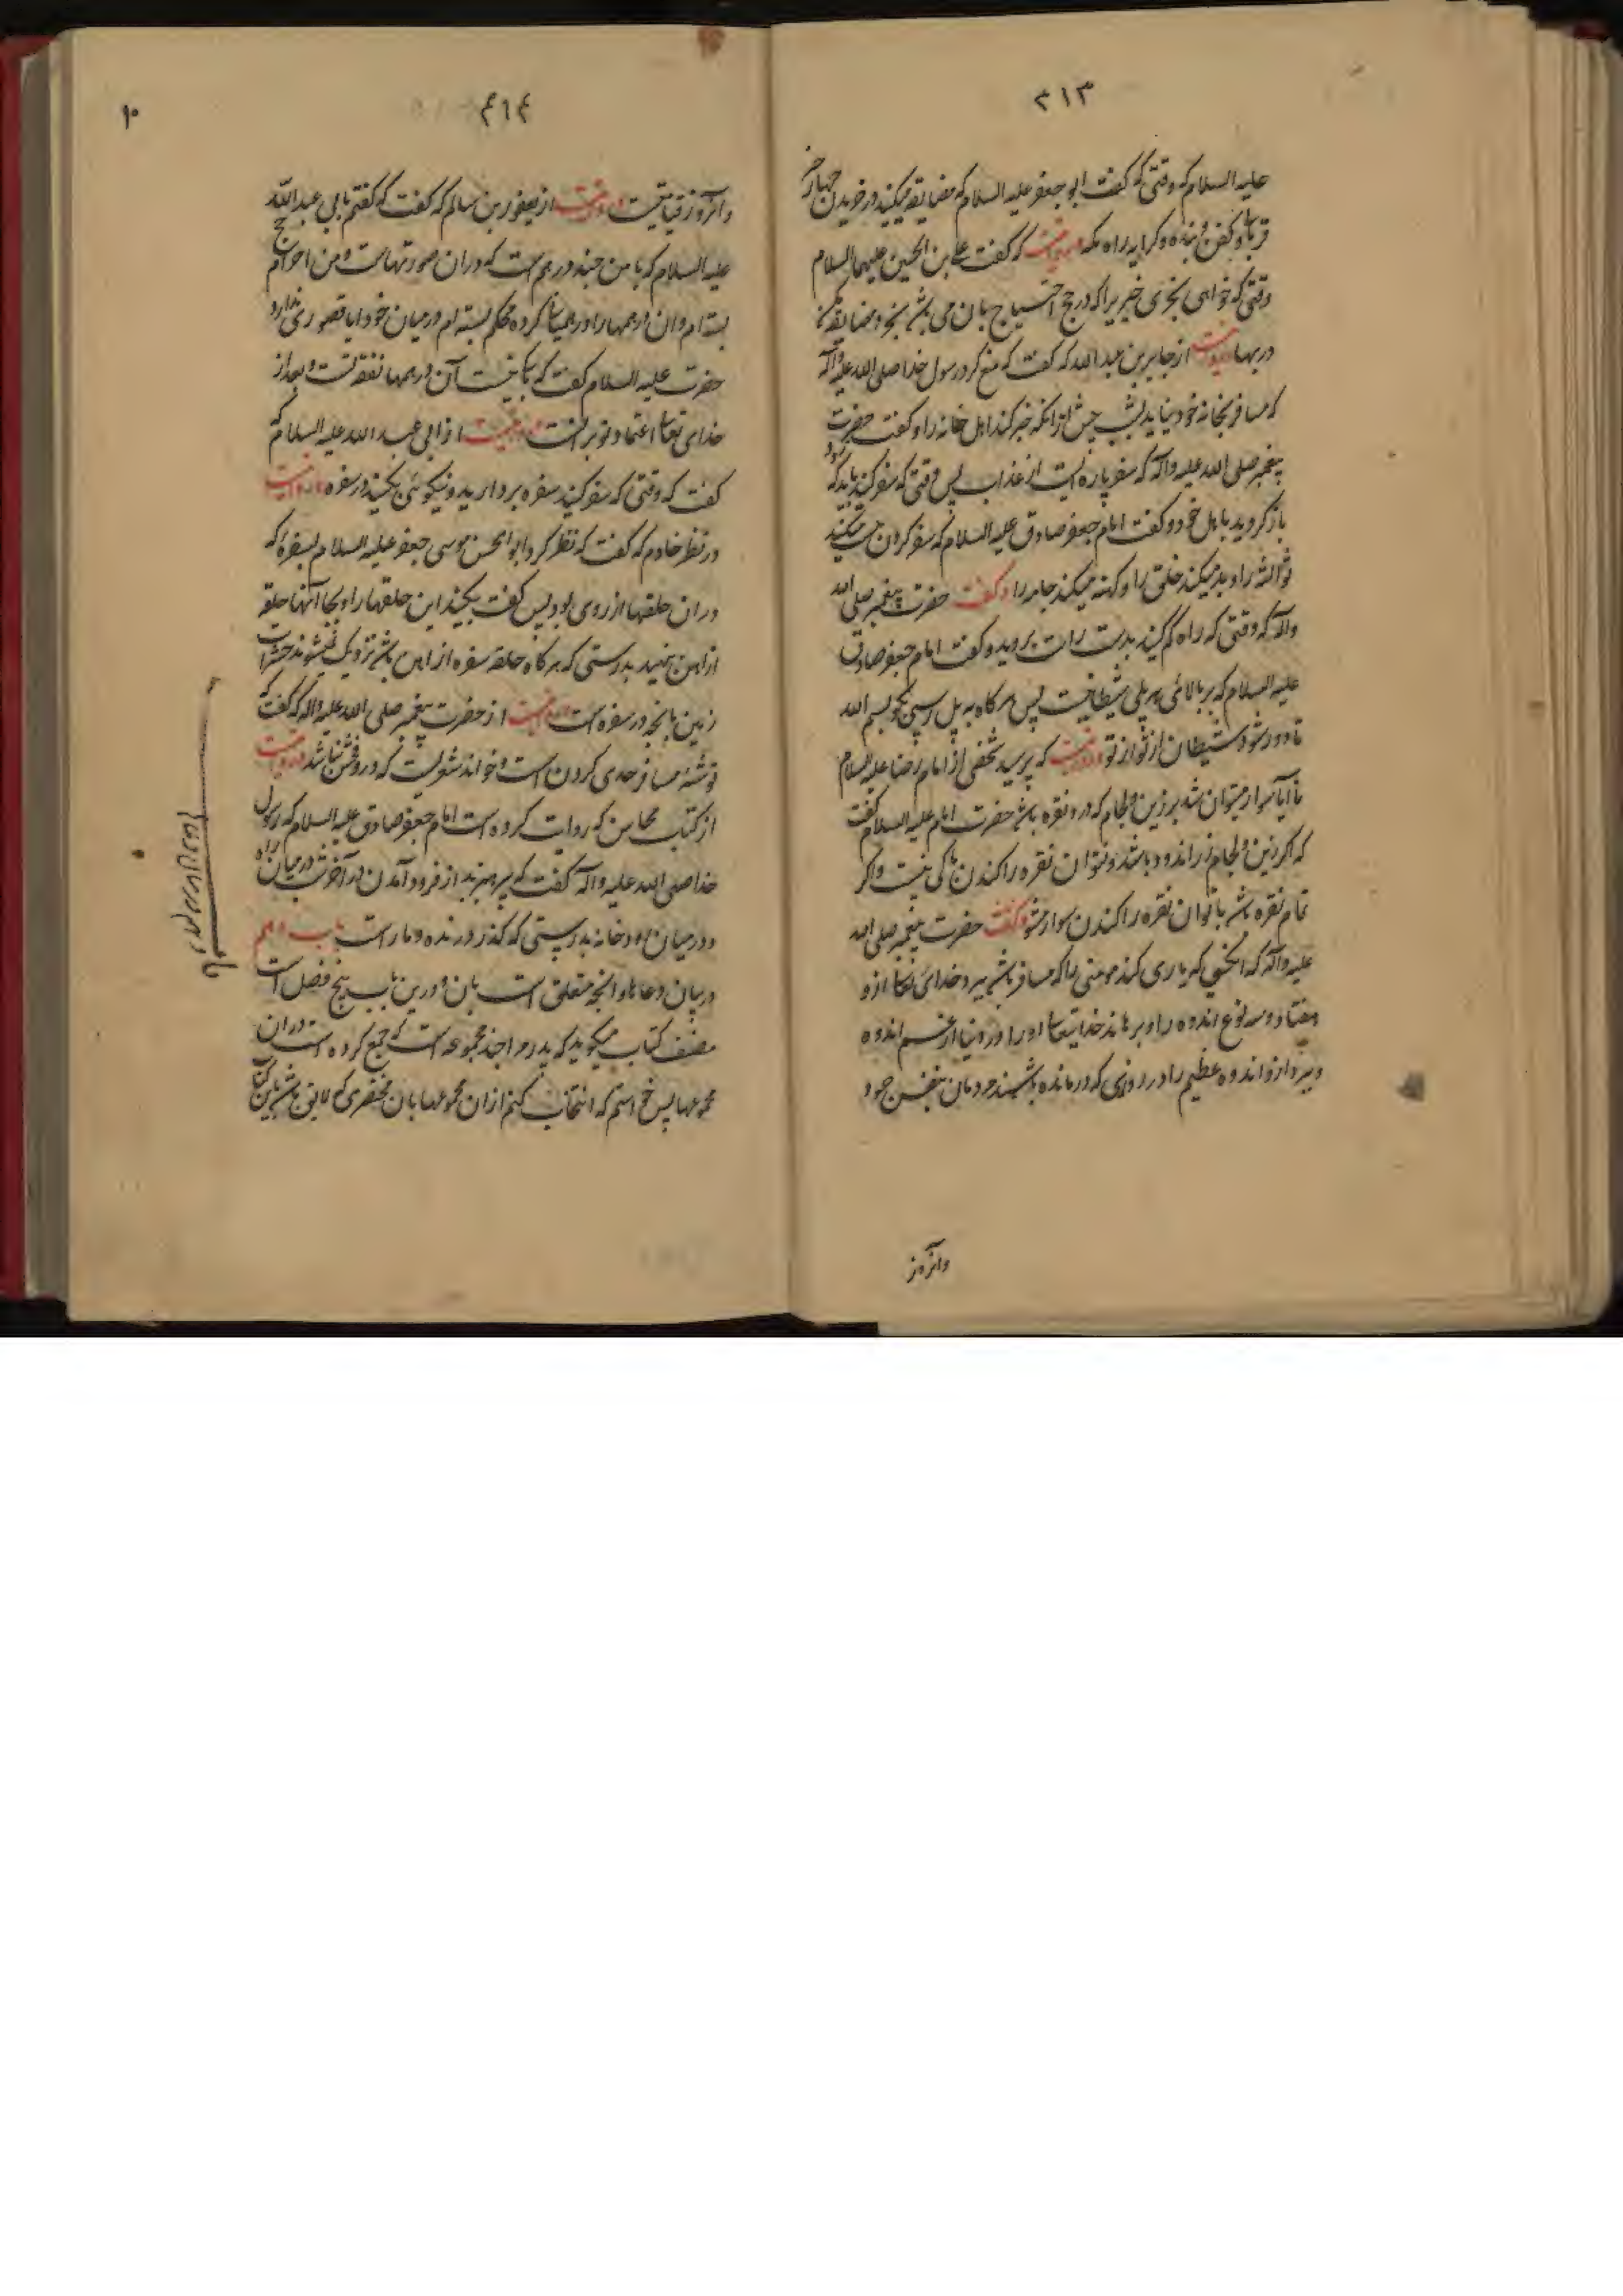 ٣١٣
علیه السلام که وقتی که گفت ابو جعفر علیه السلام که مضایقه میکنید در خریدن چهار چیز
قربانی و کفن و بنده و کرایه راه مکه و روایت که گفت علی بن الحسین علیهما السلام
وقتی که خواهی بخری چیزیرا که در حج احتیاج بان می باشد بخر و مضایقه مکن
در بها و روایت از جابر بن عبدالله که گفت که منع کرد رسول خدا صلی الله علیه وآله
که مسافر بخانه خود نیاید بشب پیش ازانکه خبر کند اهل خانه را و گفت حضرت
پیغمبر صلی الله علیه وآله که سفر پاره ایست از عذاب پس وقتی که سفر کنید باید که زود
باز گردید باهل خود و گفت امام جعفر صادق علیه السلام که سفر کردن میکند
توشه را و بد میکند خلق را و کهنه میکند جامه را و گفت حضرت پیغمبر صلی الله
وآله که وقتی که راه گم کنید بدست راست بروید و گفت امام جعفر صادق
علیه السلام که بر بالائی هر پلی شیطانیست پس هر گاه به پل رسی بگو بسم الله
تا دور شود شیطان از تو و روایت که پرسید شخصی از امام رضا علیه السلام
تا ایا سوار میتوان شد بر زین و لجام که درو نقره باشد حضرت امام علیه السلام گفت
که اگر زین و لجام زر اندود باشد و نتوان نقره را کندن باکی نیست و اگر
تمام نقره باشد یا توان نقره را کندن سوار مشو و گفت حضرت پیغمبر صلی الله
علیه وآله که آنکسی که یاری کند مومنی را که مسافر باشد ببرد خدائ تعالی ازو
هفتاد و سه نوع اندوه را و برهاند خدایتعالی او را در دنیا از غم و اندوه
و ببرد ازو اندوه عظیم را در روزی که درمانده باشند مردمان بنفس خود
وانروز
٤١٤
١٠
وانروز قیامتست و روایت از یعفور بن سالم که گفت که گفتم بابی عبدالله
علیه السلام که با من چند درهم است که دران صورتهاست و من احرام حج
بسته ام و ان درهمها را در همیان کرده محکم بسته ام در میان خود ایا قصوری ندارد
حضرت علیه السلام گفت که باکی نیست آن درهمها نفقه تست و بعد از
خدای تعالی اعتماد تو بر انست و روایت از ابی عبدالله علیه السلام که
گفت که وقتی که سفر کنید سفره بردارید و نیکوئی بکنید در سفره و روایت
در نظر خادم که گفت که نظر کرد ابوالحسن موسی جعفر علیه السلام بسفره که
دران حلقها از روی بود پس گفت بکنید این حلقها را و بجا آنها حلقه
از اهن بنهید بدرستی که هر گاه حلقه سفره از اهن باشد نزدیک نمیشوند حشرات
زمین بانچه در سفره است و روایت از حضرت پیغمبر صلی الله علیه واله که گفت که
توشه مسافر حدی کردن است و خواندن شعریست که درو فحش نباشد و روایت
از کتاب محاسن که روایت کرده است امام جعفر صادق علیه السلام که رسول
خدا صلی الله علیه واله گفت که بپرهیزید از فرود آمدن در آخر شب در میان راه
و در میان رودخانه بدرستی که گذر درنده و مار است باب دهم
در بیان دعاها و انچه متعلق است بان و درین باب پنج فصل است
مصنف کتاب میگوید که پدرم را چند مجموعه است که جمع کرده است دران
مجموعها پس خواستم که انتخاب کنم ازان مجموعها بان مختصری که لایق باشد باین کتاب